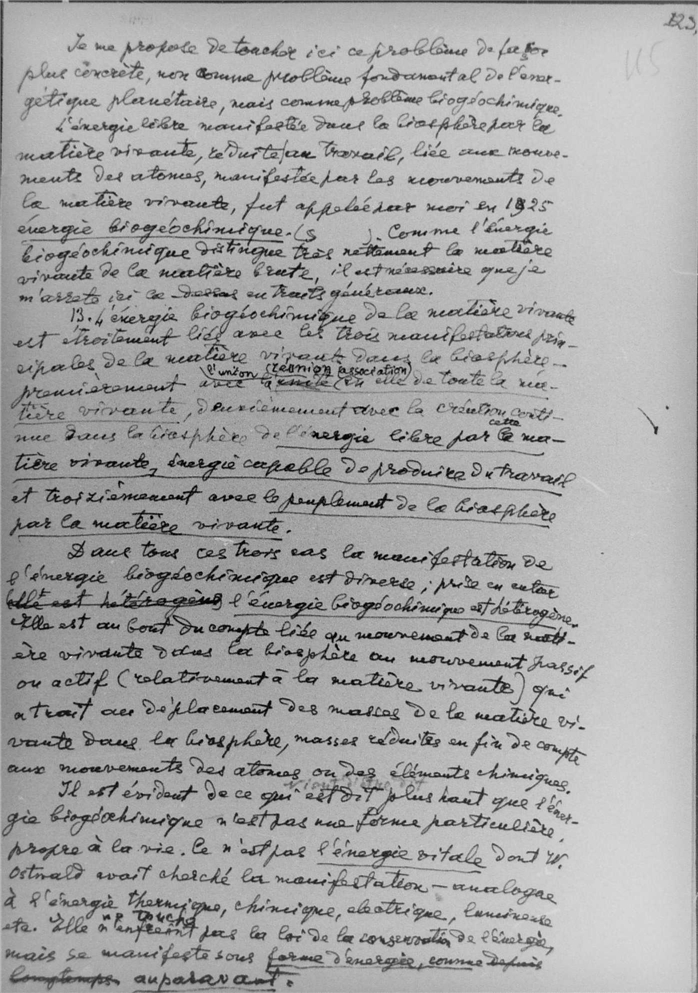 123.
115
Je me propose de toucher ici ce problème de façon
plus concrète, non comme problème fondamental de l'éner-
gétique planétaire, mais comme problème biogéochimique.
L'énergie libre manifestée dans la biosphère par la
matière vivante, réduite au travail, liée aux mouve-
ments des atomes, manifestée par les mouvements de
la matière vivante, fut appelée par moi en 1925
énergie biogéochimique. (s ). Comme l'énergie
biogéochimique distingue très nettement la matière
vivante de la matière brute, il est nécessaire que je
m'arrete ici ce dessus en traits généraux.
13. L'énergie biogéochimique de la matière vivante
est étroitement liée avec les trois manifestations prin-
cipales de la matière vivante dans la biosphère –
l'union (réunion association)
premièrement avec en elle de toute la ma-
tière vivante, deuxièmement avec la création conti-
cette
nue dans la biosphère de l'énergie libre par la ma-
tière vivante, énergie capable de produire du travail
et troizièmement avec le peuplement de la biosphère
par la matière vivante.
Dans tous ces trois cas la manifestation de
l'énergie biogéochimique est diverse; prise en entier
elle est hétérogène l'énergie biogéochimique est hétérogène.
Elle est au bout du compte liée au mouvement de la mati-
ère vivante dans la biosphère au mouvement passif
ou actif (relativement à la matière vivante) qui
a trait au déplacement des masses de la matière vi-
vante dans la biosphère, masses réduites en fin de compte
aux mouvements des atomes ou des éléments chimiques.
Il est évident de ce qui est dit plus haut que l'éner-
gie biogéochimique n'est pas une forme particulière,
propre à la vie. Ce n'est pas l'énergie vitale dont W.
Ostwald avait cherché la manifestation – analogue
à l'énergie thermique, chimique, electrique, lumineuse
ne touche
etc. Elle n'enfreint pas la loi de la conservation de l'énergie,
mais se manifeste sous forme d'énergie, connue depuis
longtemps auparavant.